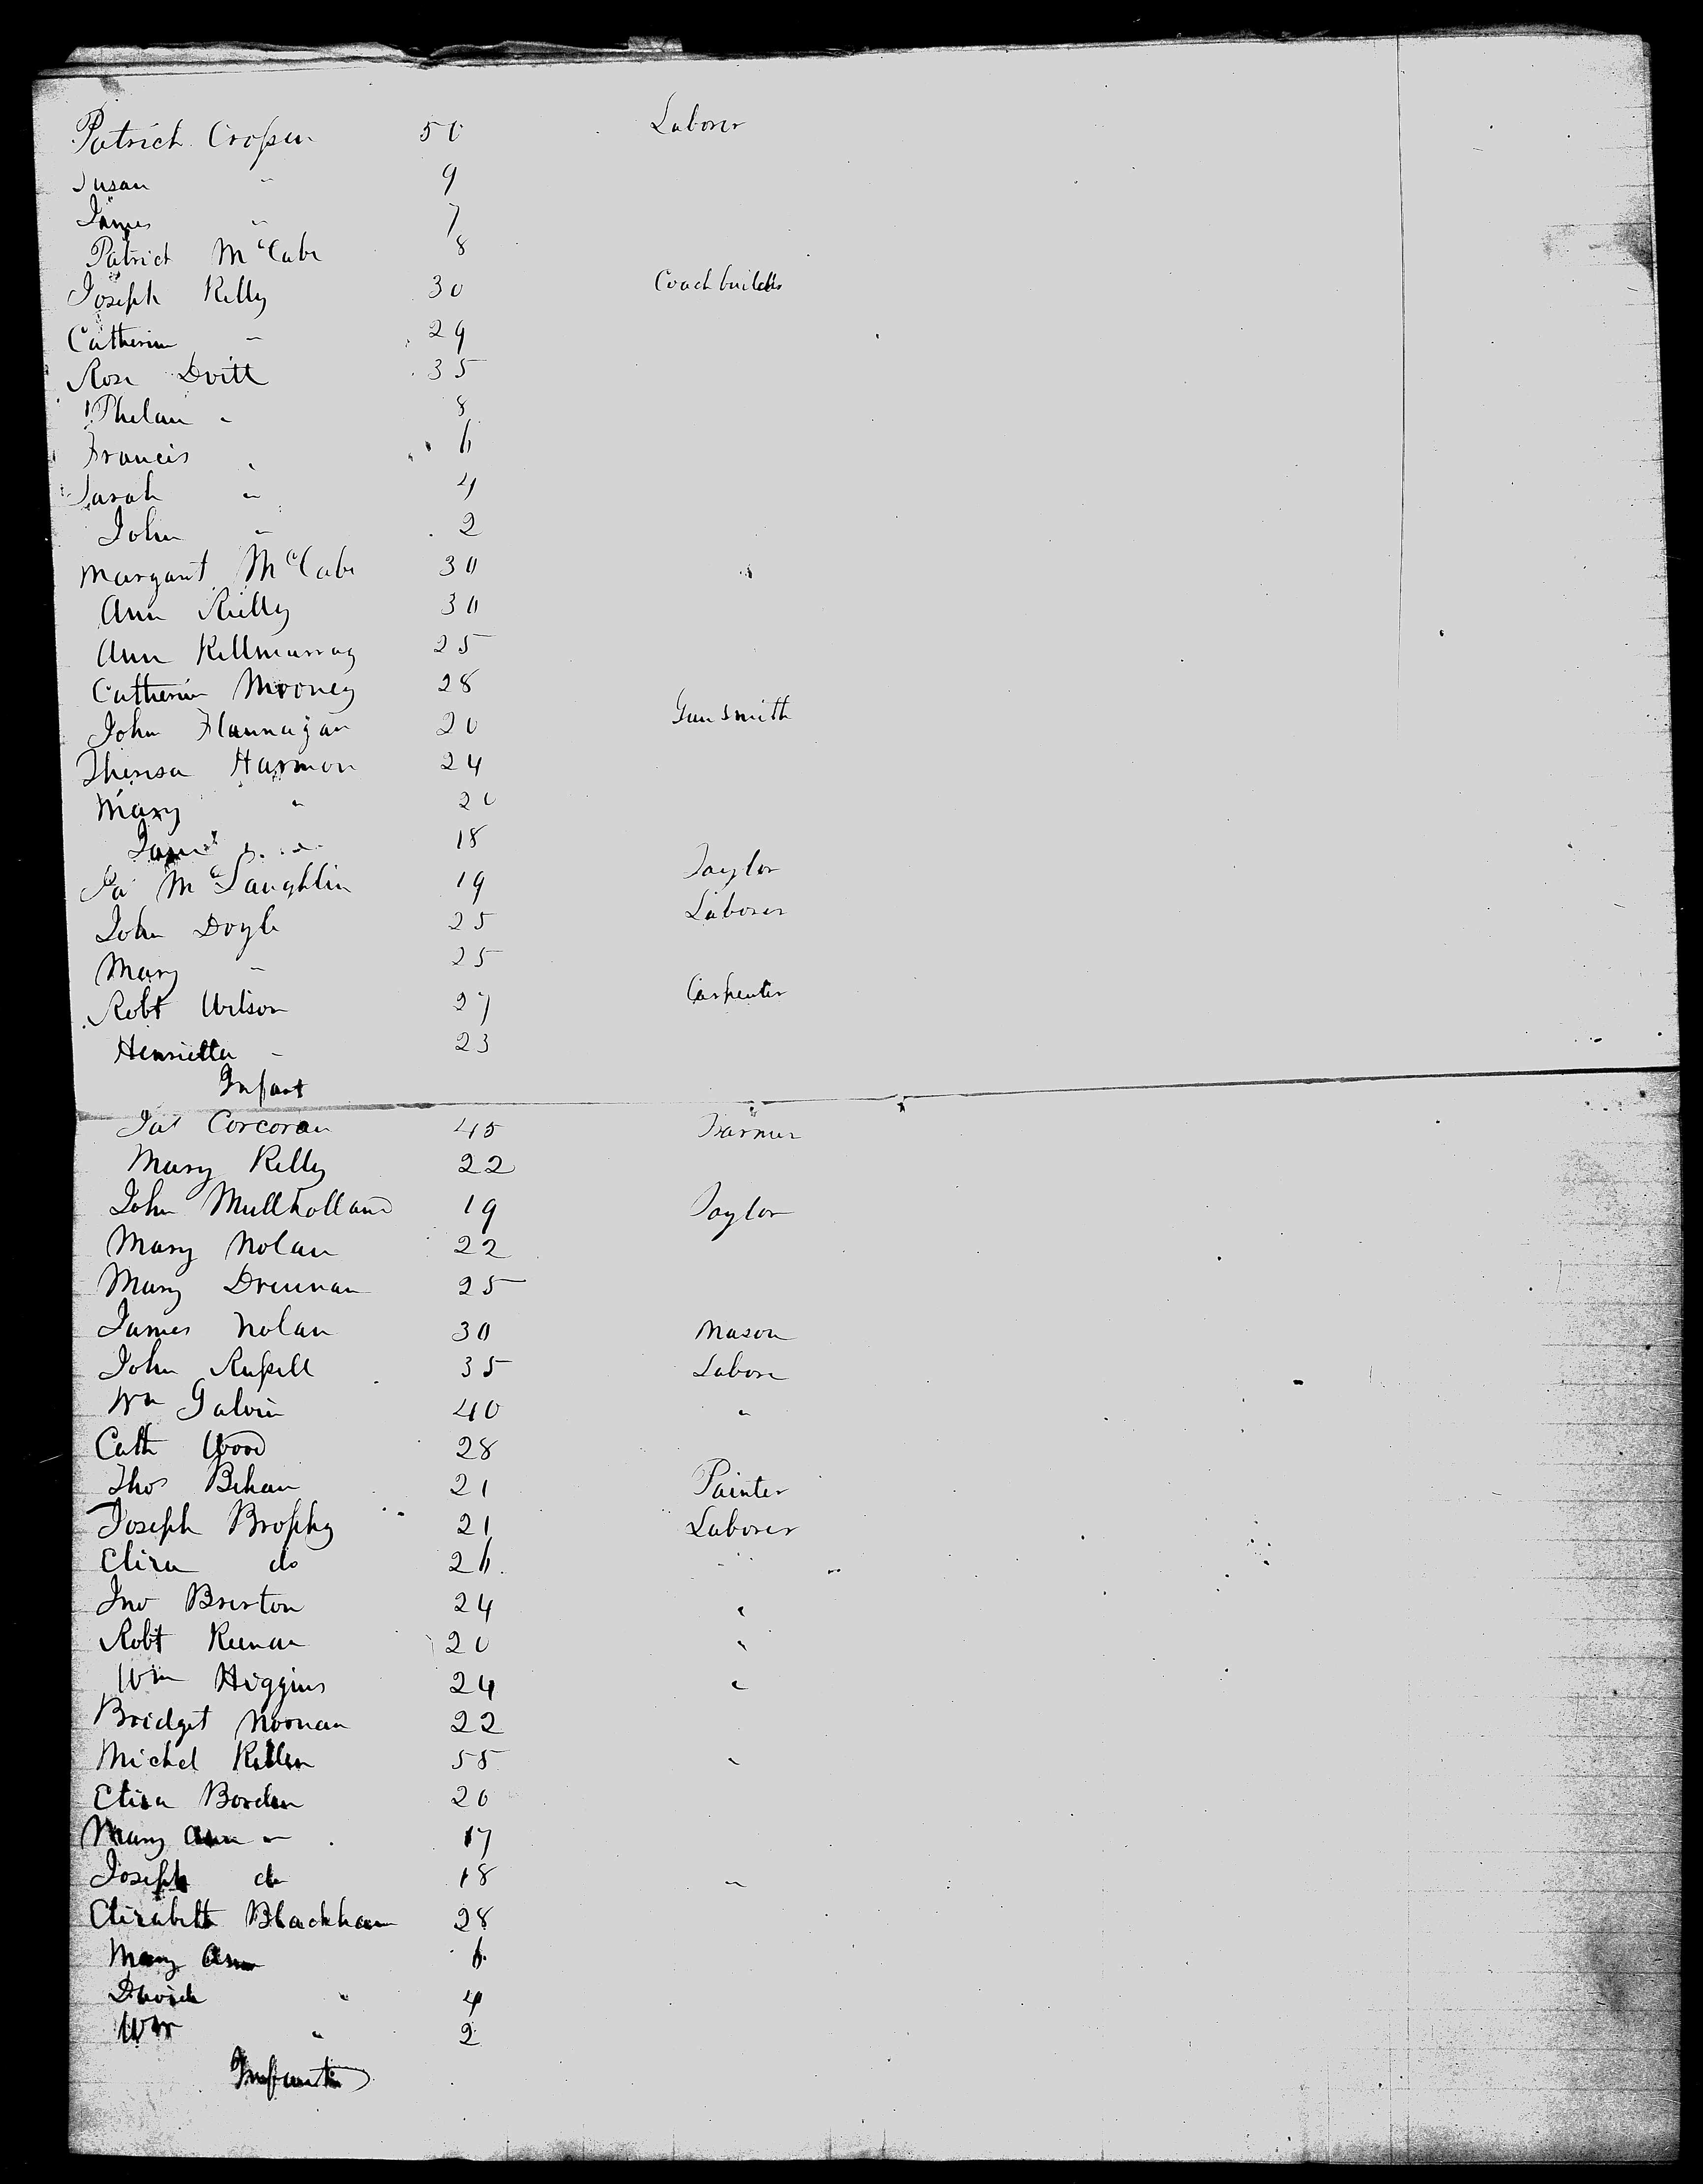 Patrick Crossen 50 Laborer
Susan " 9
James " 7
Patrick McCabe 8
Joseph Kelly 30 Coachbuilder
Catherine " 29
Rose Dvitt 35
Phelan " 8
Francis " 6
Sarah " 4
John " 2
Margaret McCabe 30
Ann Reilly 30
Ann Kellmurray 25
Catherine Mooney 28
John Flannagan 20 Gunsmith
Theresa Harmon 24
Mary " 20
James " 18
McLaughlin 19 Taylor
John Doyle 25 Laborer
Mary " 25
Robt Wilson 27 Carpenter
Henrietta " 23
Infant
Corcoran 45 Farmer
Mary Kelly 22
John Mullholland 19 Taylor
Mary Nolan 22
Mary Drennan 25
James Nolan 30 Mason
John Russell 35 Labore
Wm Galvin 40 "
Cath Wood 28
Thos Behan 21 Painter
Joseph Brophy 21 Laborer
Eliza do 26
Jno Brerton 24 "
Robt Keenan 20 "
Wm Higgins 24 "
Bridget Noonan 22
Michel 55 "
Eliza Borden 20
Mary Ann " 17
Joseph do 18 "
Elizabeth Blackham 28
Mary Ann 6
David " 4
Wm " 2
Infant